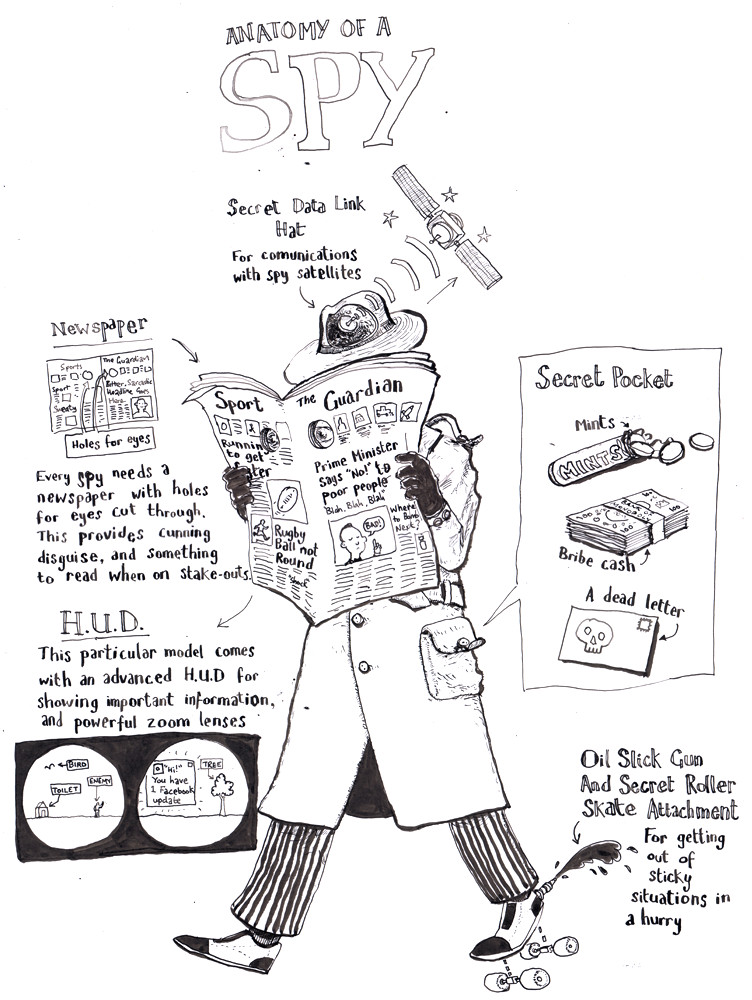 ANATOMY OF A
SPY
Secret Data Link
Hat
For comunications
with spy satellites
Newspaper
Sports
Sport
Sweaty
The Guardian
Bitter, Sarcastic
Headline Goes
Here
Holes for eyes
Every spy needs a
newspaper with holes
for eyes cut through.
This provides cunning
disguise, and something
to read when on stake-outs.
Sport
Running
to get
The Guardian
Prime Minister
Says "No!" to
poor people
"Blah, Blah, Blah"
BAD!
Where
to Bomb
Next?
Rugby
Ball not
Round
Shock
H.U.D.
This particular model comes
with an advanced H.U.D for
showing important information,
and powerful zoom lenses
BIRD
TOILET
ENEMY
"Hi!"
You have
1 Facebook
update
TREE
Secret Pocket
Mints
MINTS
Bribe cash
A dead letter
Oil Slick Gun
And Secret Roller
Skate Attachment
For getting
out of
sticky
situations in
a hurry